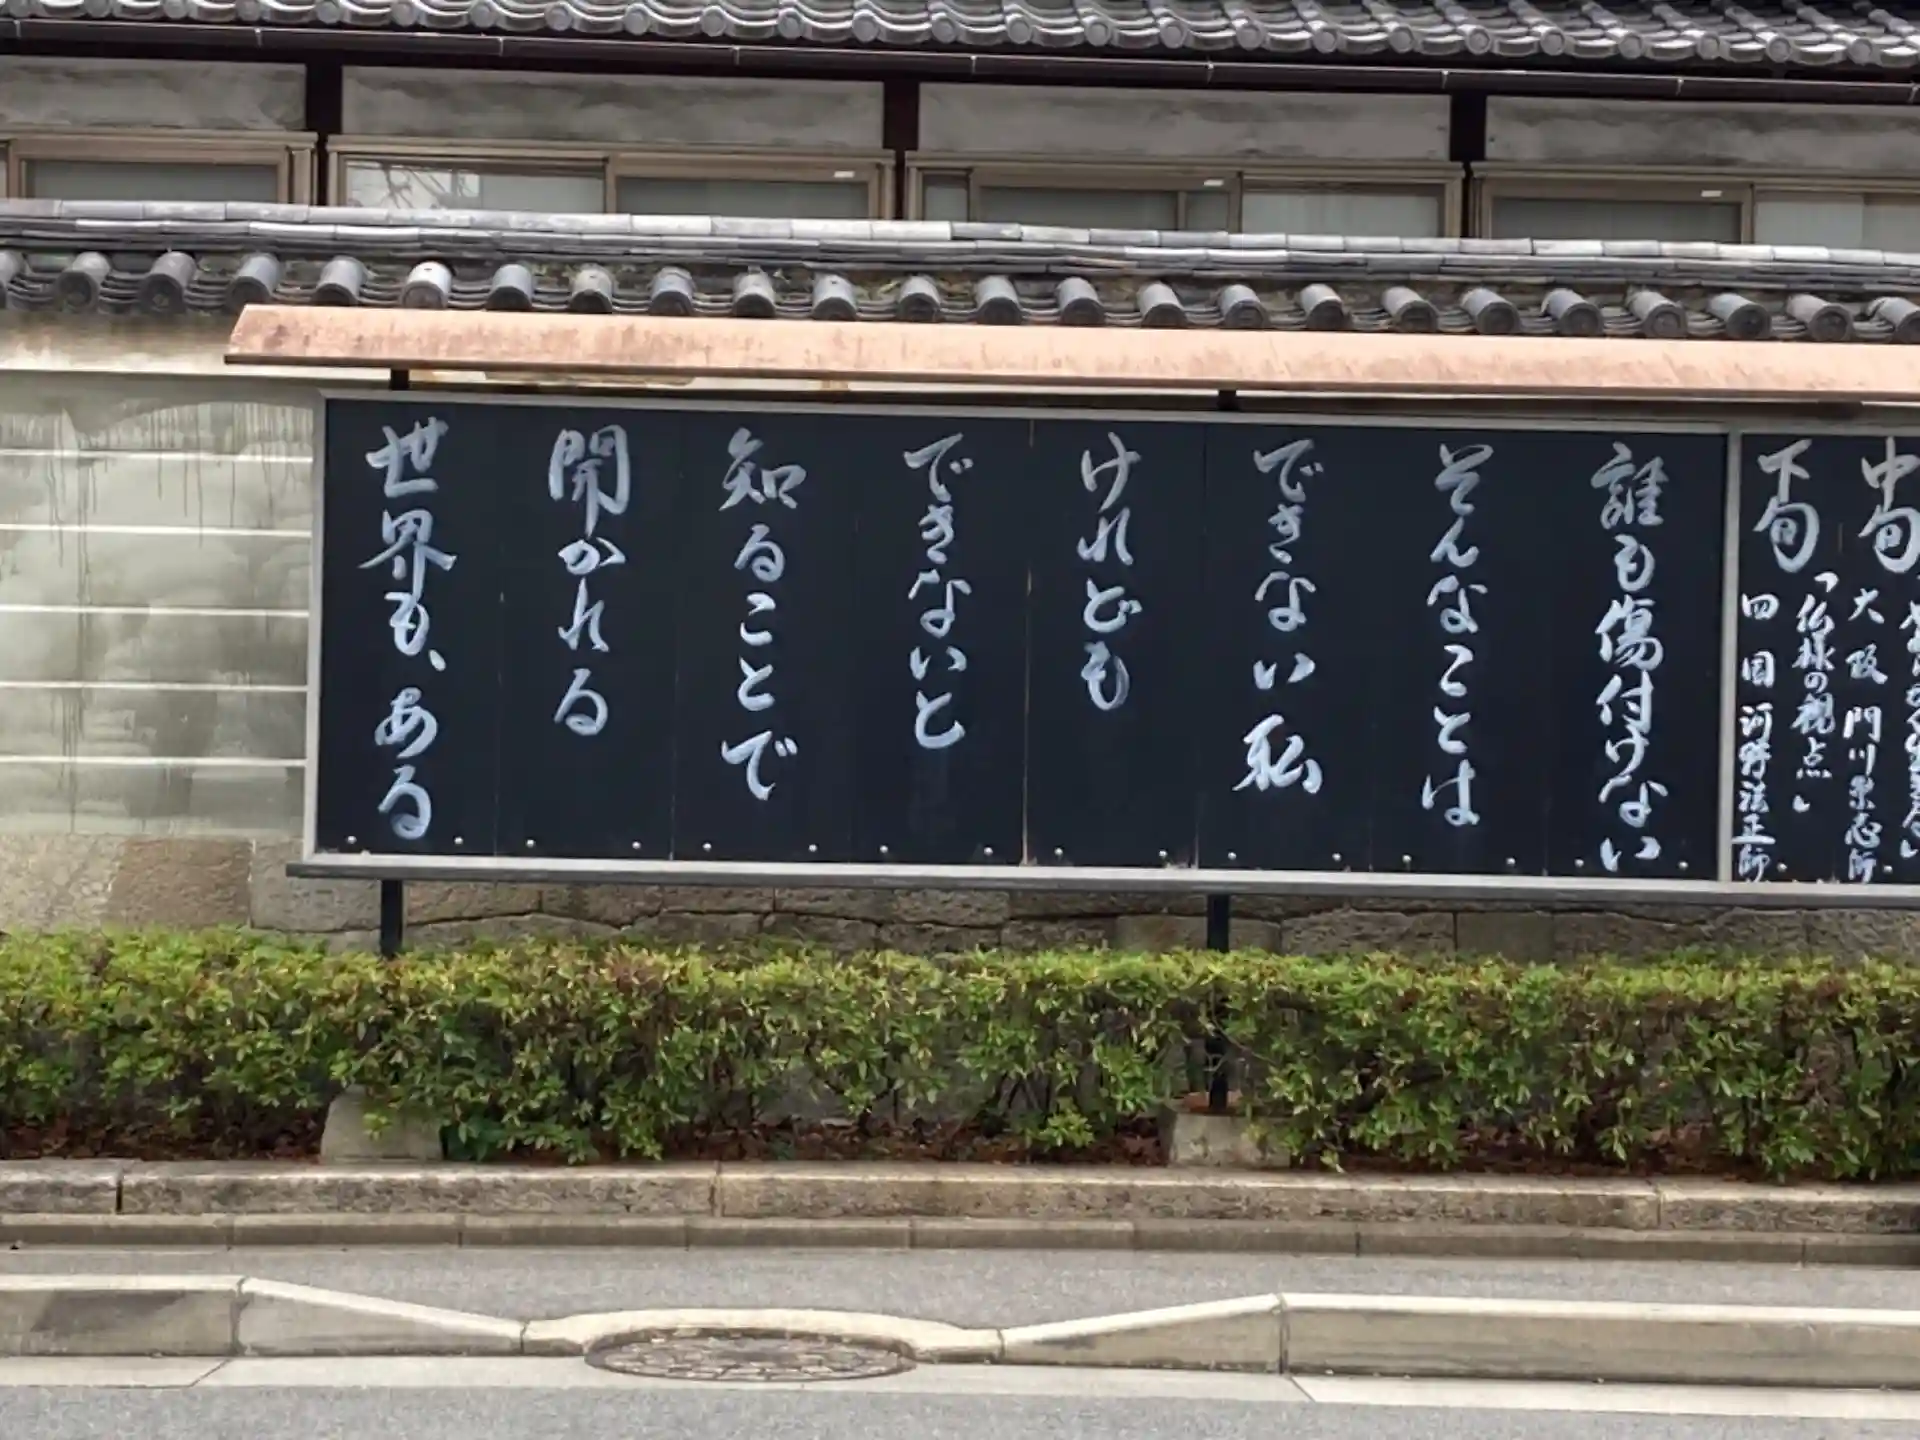 中旬
大阪 門川崇志師
下旬
「仏様の観点」
四国 河野法正師
誰も傷付けない
そんなことは
できない私
けれども
できないと
知ることで
開かれる
世界も、ある